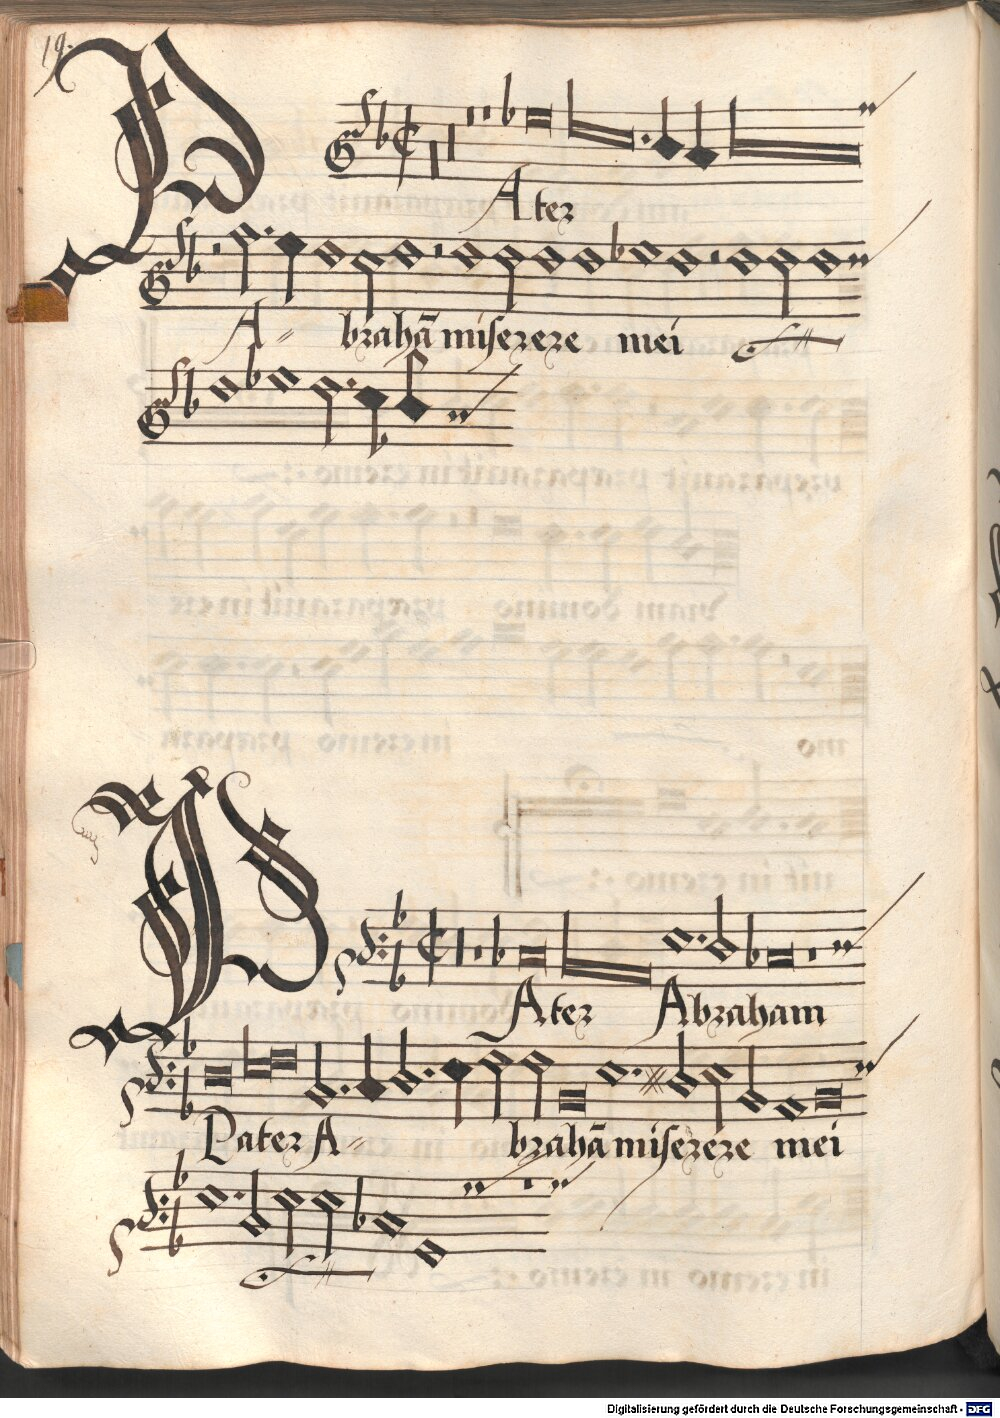 19.
PAter
A= brahā miserere mei
PAter Abraham
Pater A= brahā miserere mei
Digitalisierung gefördert durch die Deutsche Forschungsgemeinschaft - DFG